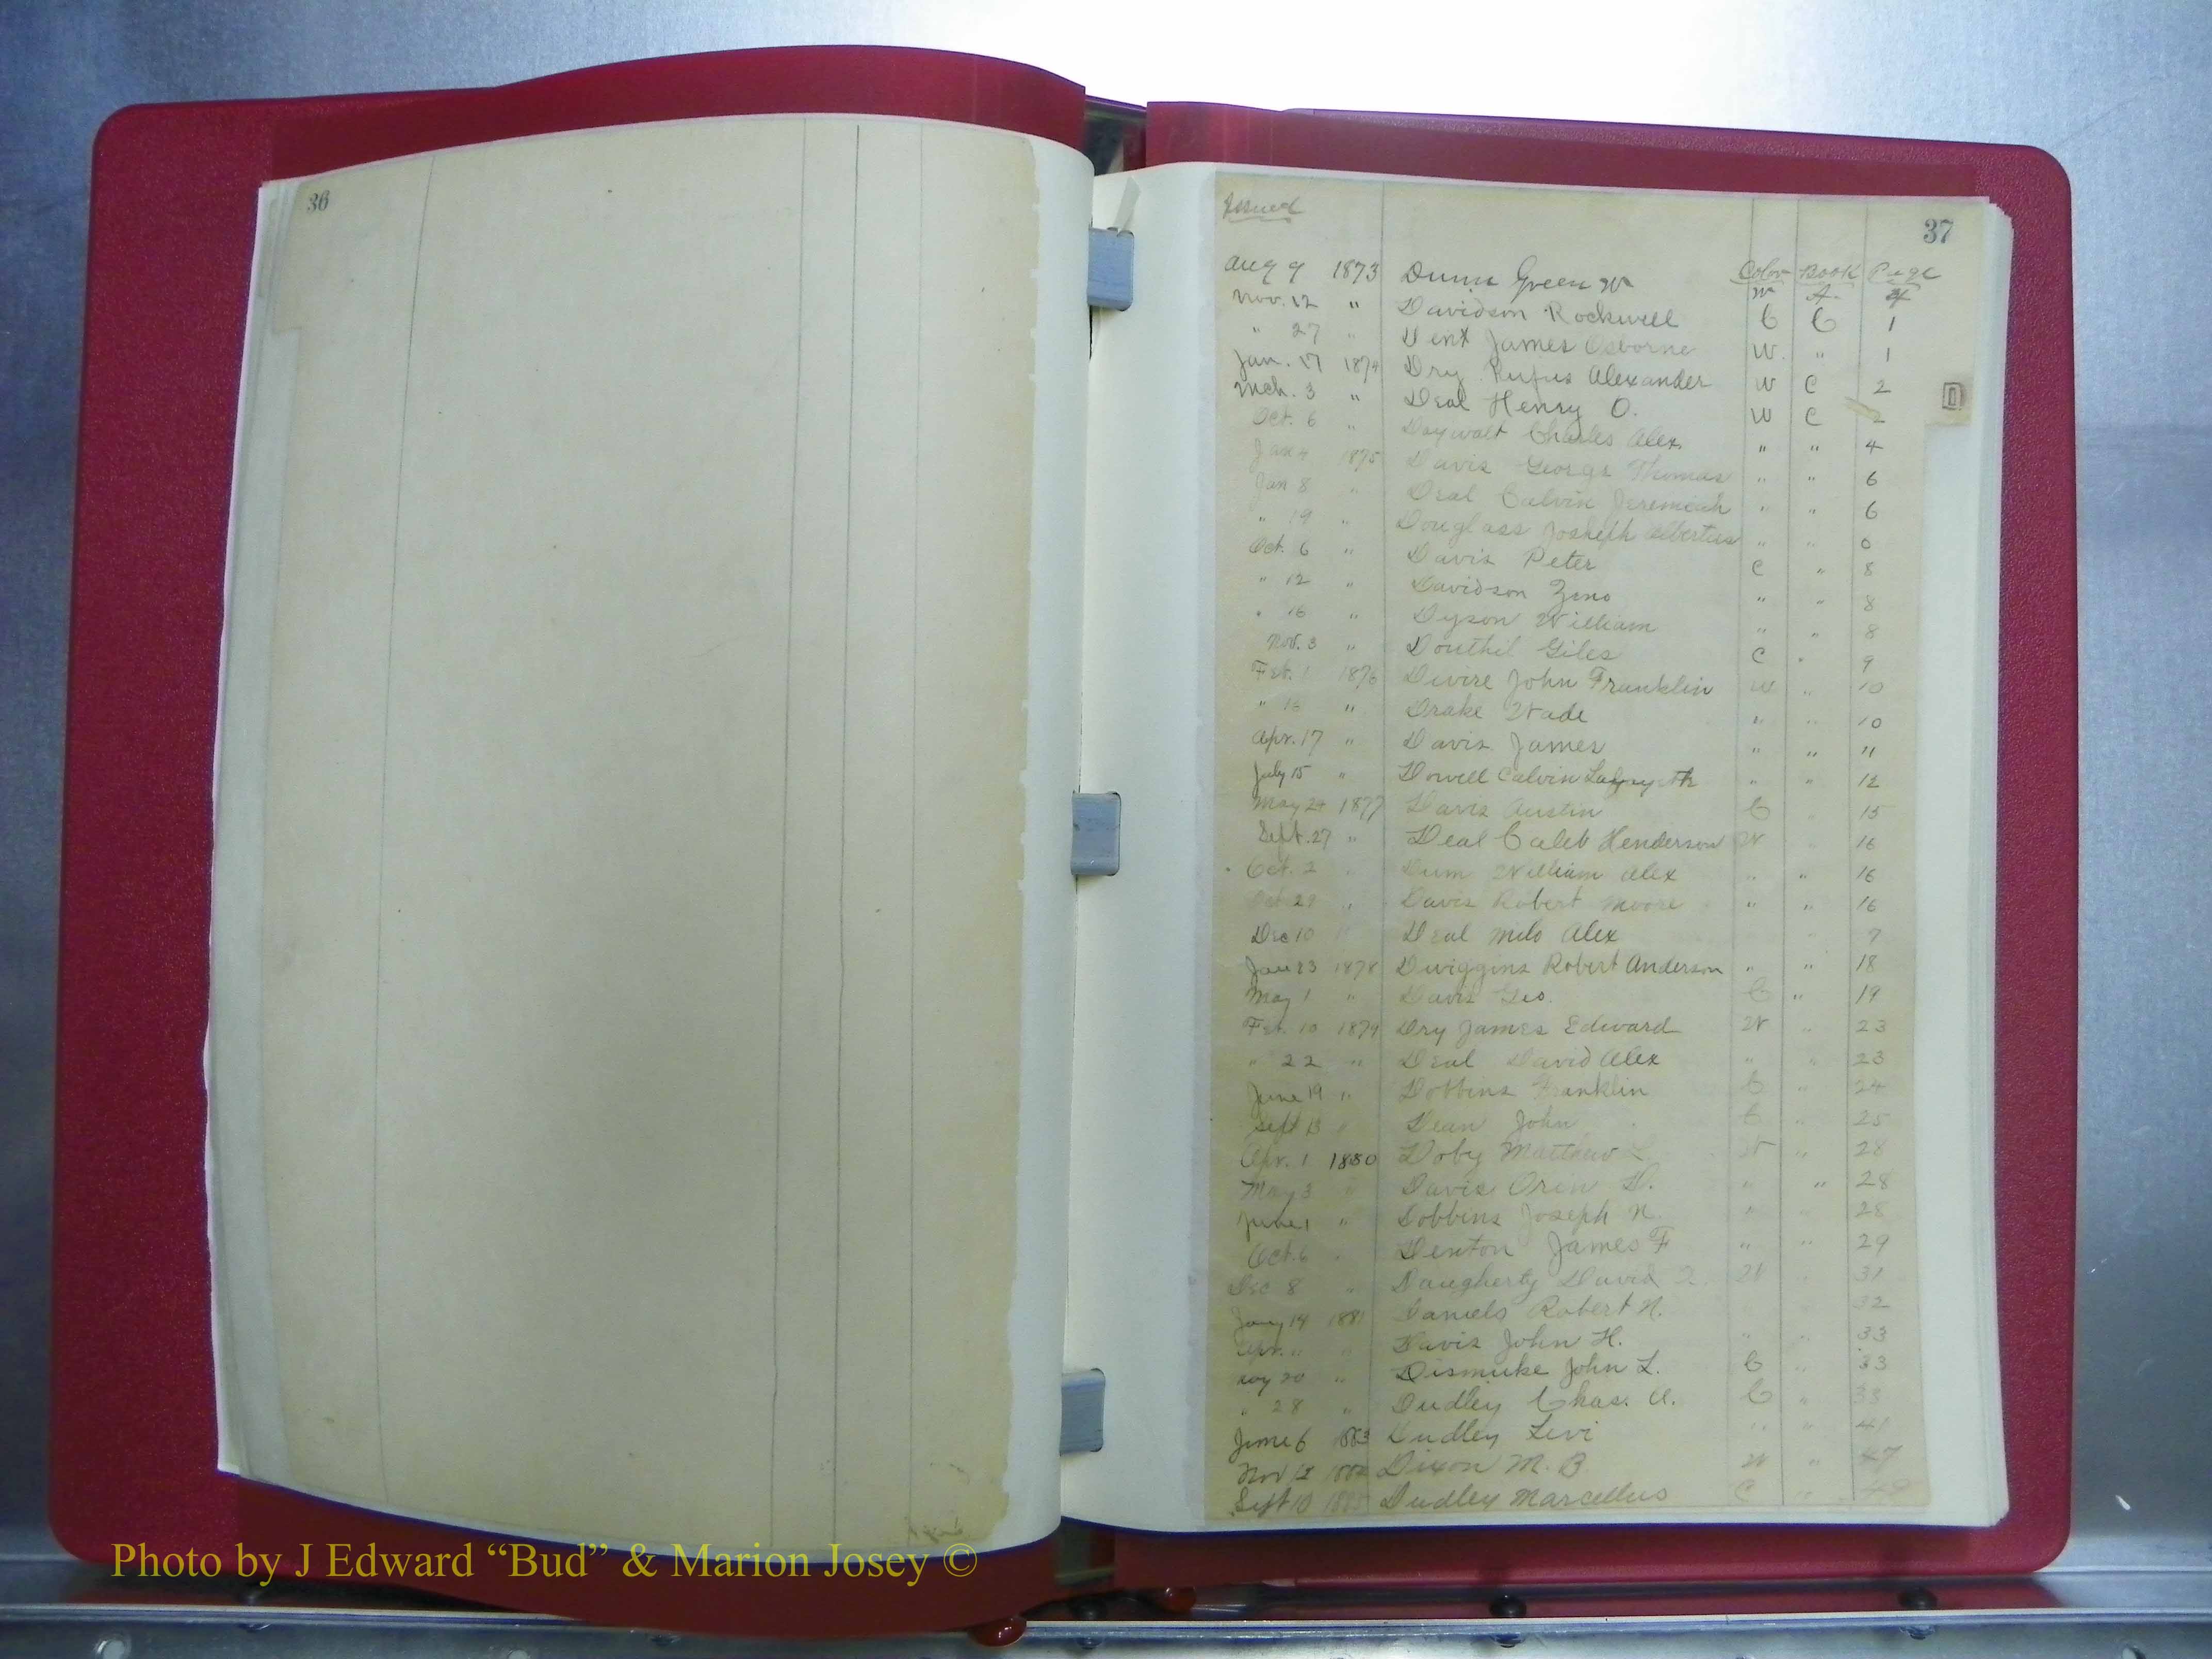 36
Issued
37
Color Book Page
Aug 9 1873 Dunn Green W W A. 4
Nov. 12 " Davidson Rockwell C C 1
" 27 " Dent James Osborne W. " 1
Jan. 17 1874 Dry Rufus Alexander W C 2
Mch. 3 " Deal Henry O. W C 2
Oct. 6 " Daywalt Charles Alex " " 4
Jan 4 1875 Davis George Thomas " " 6
Jan 8 " Deal Calvin Jeremiah " " 6
" 19 " Douglass Joseph Albertus " " 6
Oct. 6 " Davis Peter C " 8
" 12 " Davidson Zeno " " 8
" 16 " Dyson William " " 8
Nov. 3 " Douthit Giles C " 9
Feb. 1 1876 Devire John Franklin W " 10
" 16 " Drake Wade " " 10
Apr. 17 " Davis James " " 11
July 15 " Dowell Calvin " " 12
May 24 1877 Davis Austin C " 15
Sept. 27 " Deal Caleb Henderson W " 16
Oct. 2 " Dum William Alex " " 16
Oct 29 " Davis Robert Moore " " 16
Dec 10 " Deal Milo Alex 7
Jan 23 1878 Dwiggins Robert Anderson " " 18
May 1 " Davis Geo. C " 19
Feb. 10 1879 Dry James Edward W " 23
" 22 " Deal David Alex " " 23
June 19 " Dobbins Franklin C " 24
Sept 13 " Dean John C " 25
Apr. 1 1880 Doby Matthew L W " 28
May 3 " Davis Oren D. " " 28
June 1 " Dobbins Joseph N. " " 28
Oct. 6 " Denton James F " " 29
Dec 8 " Daugherty David W " 31
Jany 14 1881 Daniels Robert N. 32
Apr. " " Davis John H. " " 33
20 " Dismuke John L. C " 33
" 28 " Dudley Chas. A. C " 33
June 6 1883 Dudley Levi " " 41
Nov 12 Dixon M. B. W " 47
Sept 10 Dudley Marcellus C " 49
D
Photo by J Edward “Bud” & Marion Josey ©